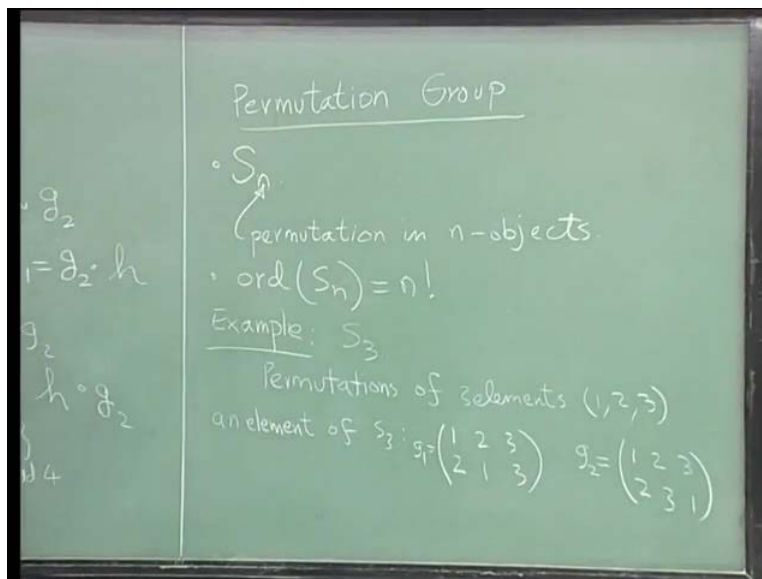 g₂
= g₂ · h
g₂
h · g₂
Permutation Group
• Sₙ
permutation in n-objects.
• ord(Sₙ) = n!
Example: S₃
Permutations of 3elements (1,2,3)
an element of S₃: g₁= (1 2 3 g₂= (1 2 3
2 1 3) 2 3 1)